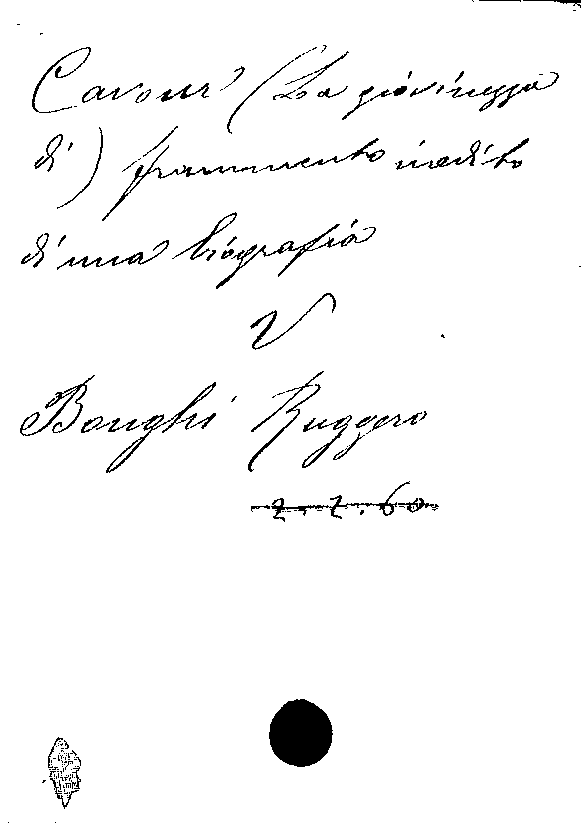 Cavour (La giovinezza
di) frammento inedito
di una biografia
V
Bonghi Ruggero
2.2.60